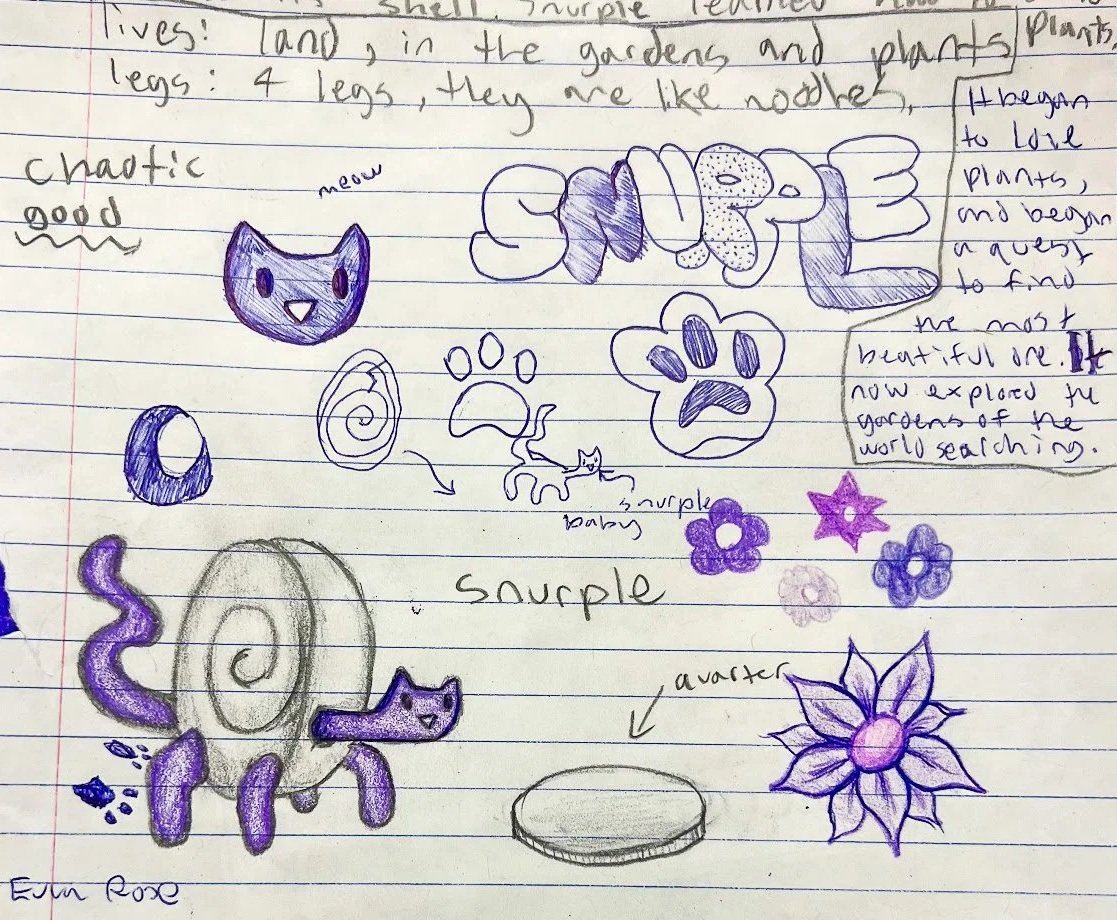 shell. Snurple learned how
lives: land, in the gardens and plants
plants.
legs: 4 legs, they are like noodles.
It began
to love
plants,
and began
a quest
to find
the most
beatiful one. It
now explored the
gardens of the
world searching.
chaotic
good
meow
SNURPLE
snurple
baby
snurple
quarter
Rose